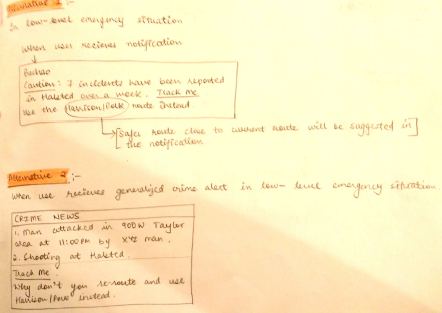 Alternative 1 :-
In low-level emergency situation
when user recieves notification
Bachao
Caution : 7 incidents have been reported
in Halsted over a week. Track Me
Use the Harrison/Polk route instead
Safer route close to current route will be suggested in
the notification
Alternative 2 :-
When use recieves generalized crime alert in low-level emergency situation.
CRIME NEWS
1. Man attacked in 900W Taylor
area at 11:00PM by XYZ man.
2. Shooting at Halsted.
Track Me
Why don't you re-route and use
Harrison/Polk instead.